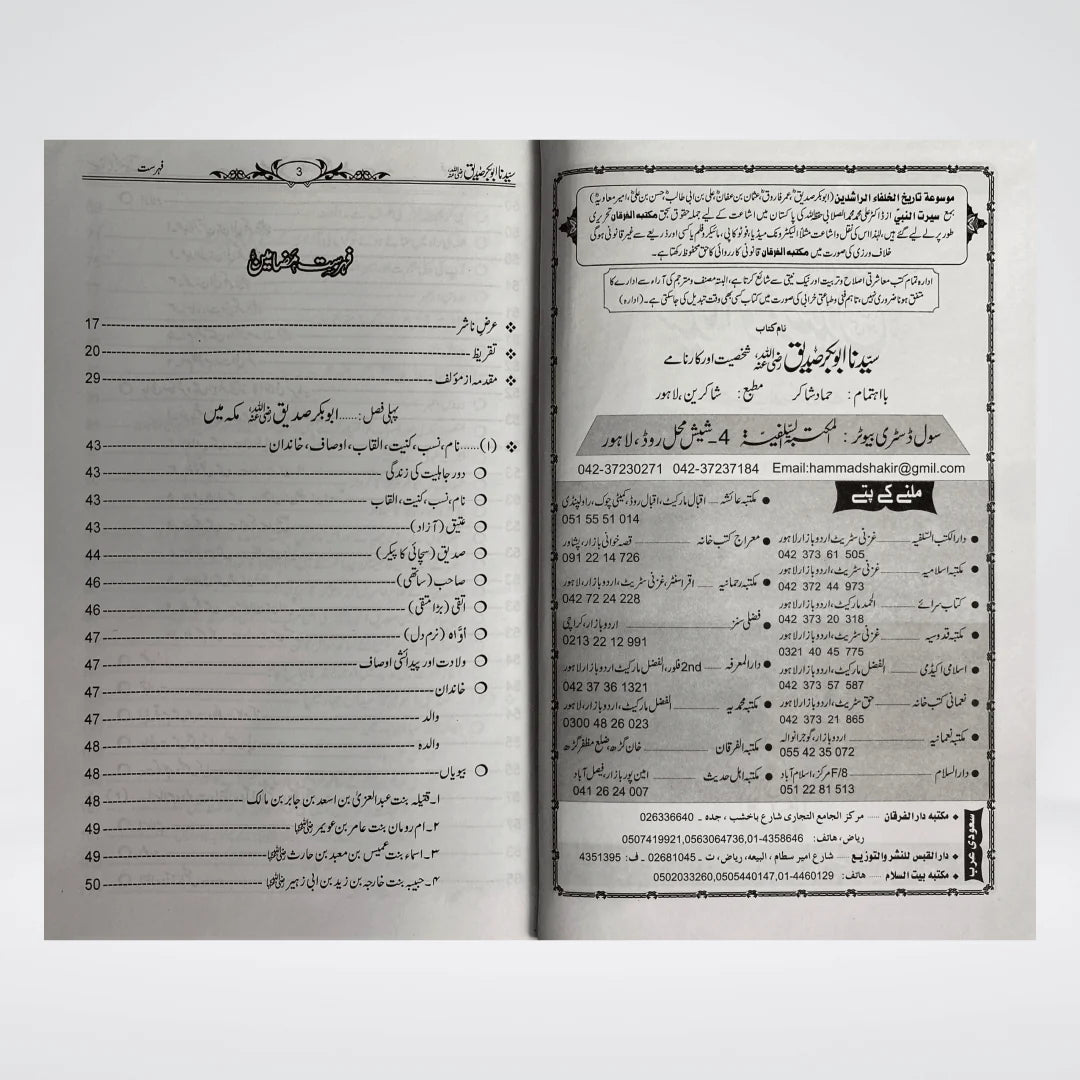 موسوعة تاريخ الخلفاء الراشدين (ابوبکر صدیق، عمر فاروق، عثمان بن عفان، علی بن ابی طالب، حسن بن علی، امیر معاویہ)
بمع سیرت النبیؐ از ڈاکٹر علی محمد محمد الصلابی حفظہ اللہ کی پاکستان میں اشاعت کے لیے جملہ حقوق بحق مکتبہ الفرقان تحریری
طور پر لے لیے گئے ہیں، لہٰذا اس کی نقل و اشاعت مثلاً الیکٹرونک میڈیا، فوٹو کاپی، مائیکرو فلم یا کسی اور ذریعے سے غیر قانونی ہوگی
خلاف ورزی کی صورت میں مکتبہ الفرقان قانونی کارروائی کا حق محفوظ رکھتا ہے۔
ادارہ تمام کتب معاشرتی اصلاح و تربیت اور نیک نیتی سے شائع کرتا ہے، البتہ مصنف و مترجم کی آراء سے ادارے کا
متفق ہونا ضروری نہیں، تاہم فنی و طباعتی خرابی کی صورت میں کتاب کسی بھی وقت تبدیل کی جاسکتی ہے۔ (ادارہ)
نام کتاب
سیّدنا ابوبکر صدیق رضی اللہ عنہ، شخصیت اور کارنامے
بااہتمام: حماد شاکر مطبع: شاکرین، لاہور
سول ڈسٹری بیوٹر: المکتبۃ السّلفیۃ 4۔ شیش محل روڈ، لاہور
042-37230271 042-37237184 Email:hammadshakir@gmil.com
ملنے کے پتے
دارالکتب السّلفیہ غزنی سٹریٹ اردو بازار لاہور
042 373 61 505
مکتبہ اسلامیہ غزنی سٹریٹ، اردو بازار، لاہور
042 372 44 973
کتاب سرائے الحمد مارکیٹ، اردو بازار لاہور
042 373 20 318
مکتبہ قدوسیہ غزنی سٹریٹ، اردو بازار لاہور
0321 40 45 775
اسلامی اکیڈمی الفضل مارکیٹ، اردو بازار لاہور
042 373 57 587
نعمانی کتب خانہ حق سٹریٹ، اردو بازار لاہور
042 373 21 865
مکتبہ نعمانیہ اردو بازار، گوجرانوالہ
055 42 35 072
دارالسلام F/8 مرکز، اسلام آباد
051 22 81 513
مکتبہ عائشہ اقبال مارکیٹ، اقبال روڈ، کمیٹی چوک، راولپنڈی
051 55 51 014
معراج کتب خانہ قصہ خوانی بازار، پشاور
091 22 14 726
مکتبہ رحمانیہ اقراسنٹر، غزنی سٹریٹ، اردو بازار، لاہور
042 72 24 228
فضلی سنز اردو بازار، کراچی
0213 22 12 991
دارالمعرفہ 2nd فلور، الفضل مارکیٹ اردو بازار لاہور
042 37 36 1321
مکتبہ محمدیہ الفضل مارکیٹ، اردو بازار، لاہور
0300 48 26 023
مکتبہ الفرقان خان گڑھ، ضلع مظفر گڑھ
مکتبہ اہل حدیث امین پور بازار، فیصل آباد
041 26 24 007
سعودی عرب
مکتبہ دار الفرقان ---- مرکز الجامع التجاری شارع باخشب، جدہ ۔ 026336640
ریاض، ھاتف: 0507419921,0563064736,01-4358646
دار القبس للنشر والتوزیع ---- شارع امیر سطام، البیعه، ریاض، ت۔ 02681045 ۔ ف: 4351395
مکتبہ بیت السلام ---- ھاتف: 0502033260,0505440147,01-4460129
سیّدنا ابوبکر صدیق رضی اللہ عنہ 3 فہرست
فہرست مضامین
عرض ناشر 17
تقریظ 20
مقدمہ از مؤلف 29
پہلی فصل:.....ابوبکر صدیق رضی اللہ عنہ مکہ میں
(۱).....نام، نسب، کنیت، القاب، اوصاف، خاندان 43
دور جاہلیت کی زندگی 43
نام، نسب، کنیت، القاب 43
عتیق (آزاد) 43
صدیق (سچائی کا پیکر) 44
صاحب (ساتھی) 46
اتقی (بڑا متقی) 46
اوّاہ (نرم دل) 47
ولادت اور پیدائشی اوصاف 47
خاندان 47
والد 47
والدہ 48
بیویاں 48
۱۔ قتیلہ بنت عبدالعزیٰ بن اسعد بن جابر بن مالک 48
۲۔ ام رومان بنت عامر بن عویمر رضی اللہ عنہا 49
۳۔ اسماء بنت عمیس بن معبد بن حارث رضی اللہ عنہا 49
۴۔ حبیبہ بنت خارجہ بن زید بن ابی زہیر رضی اللہ عنہا 50